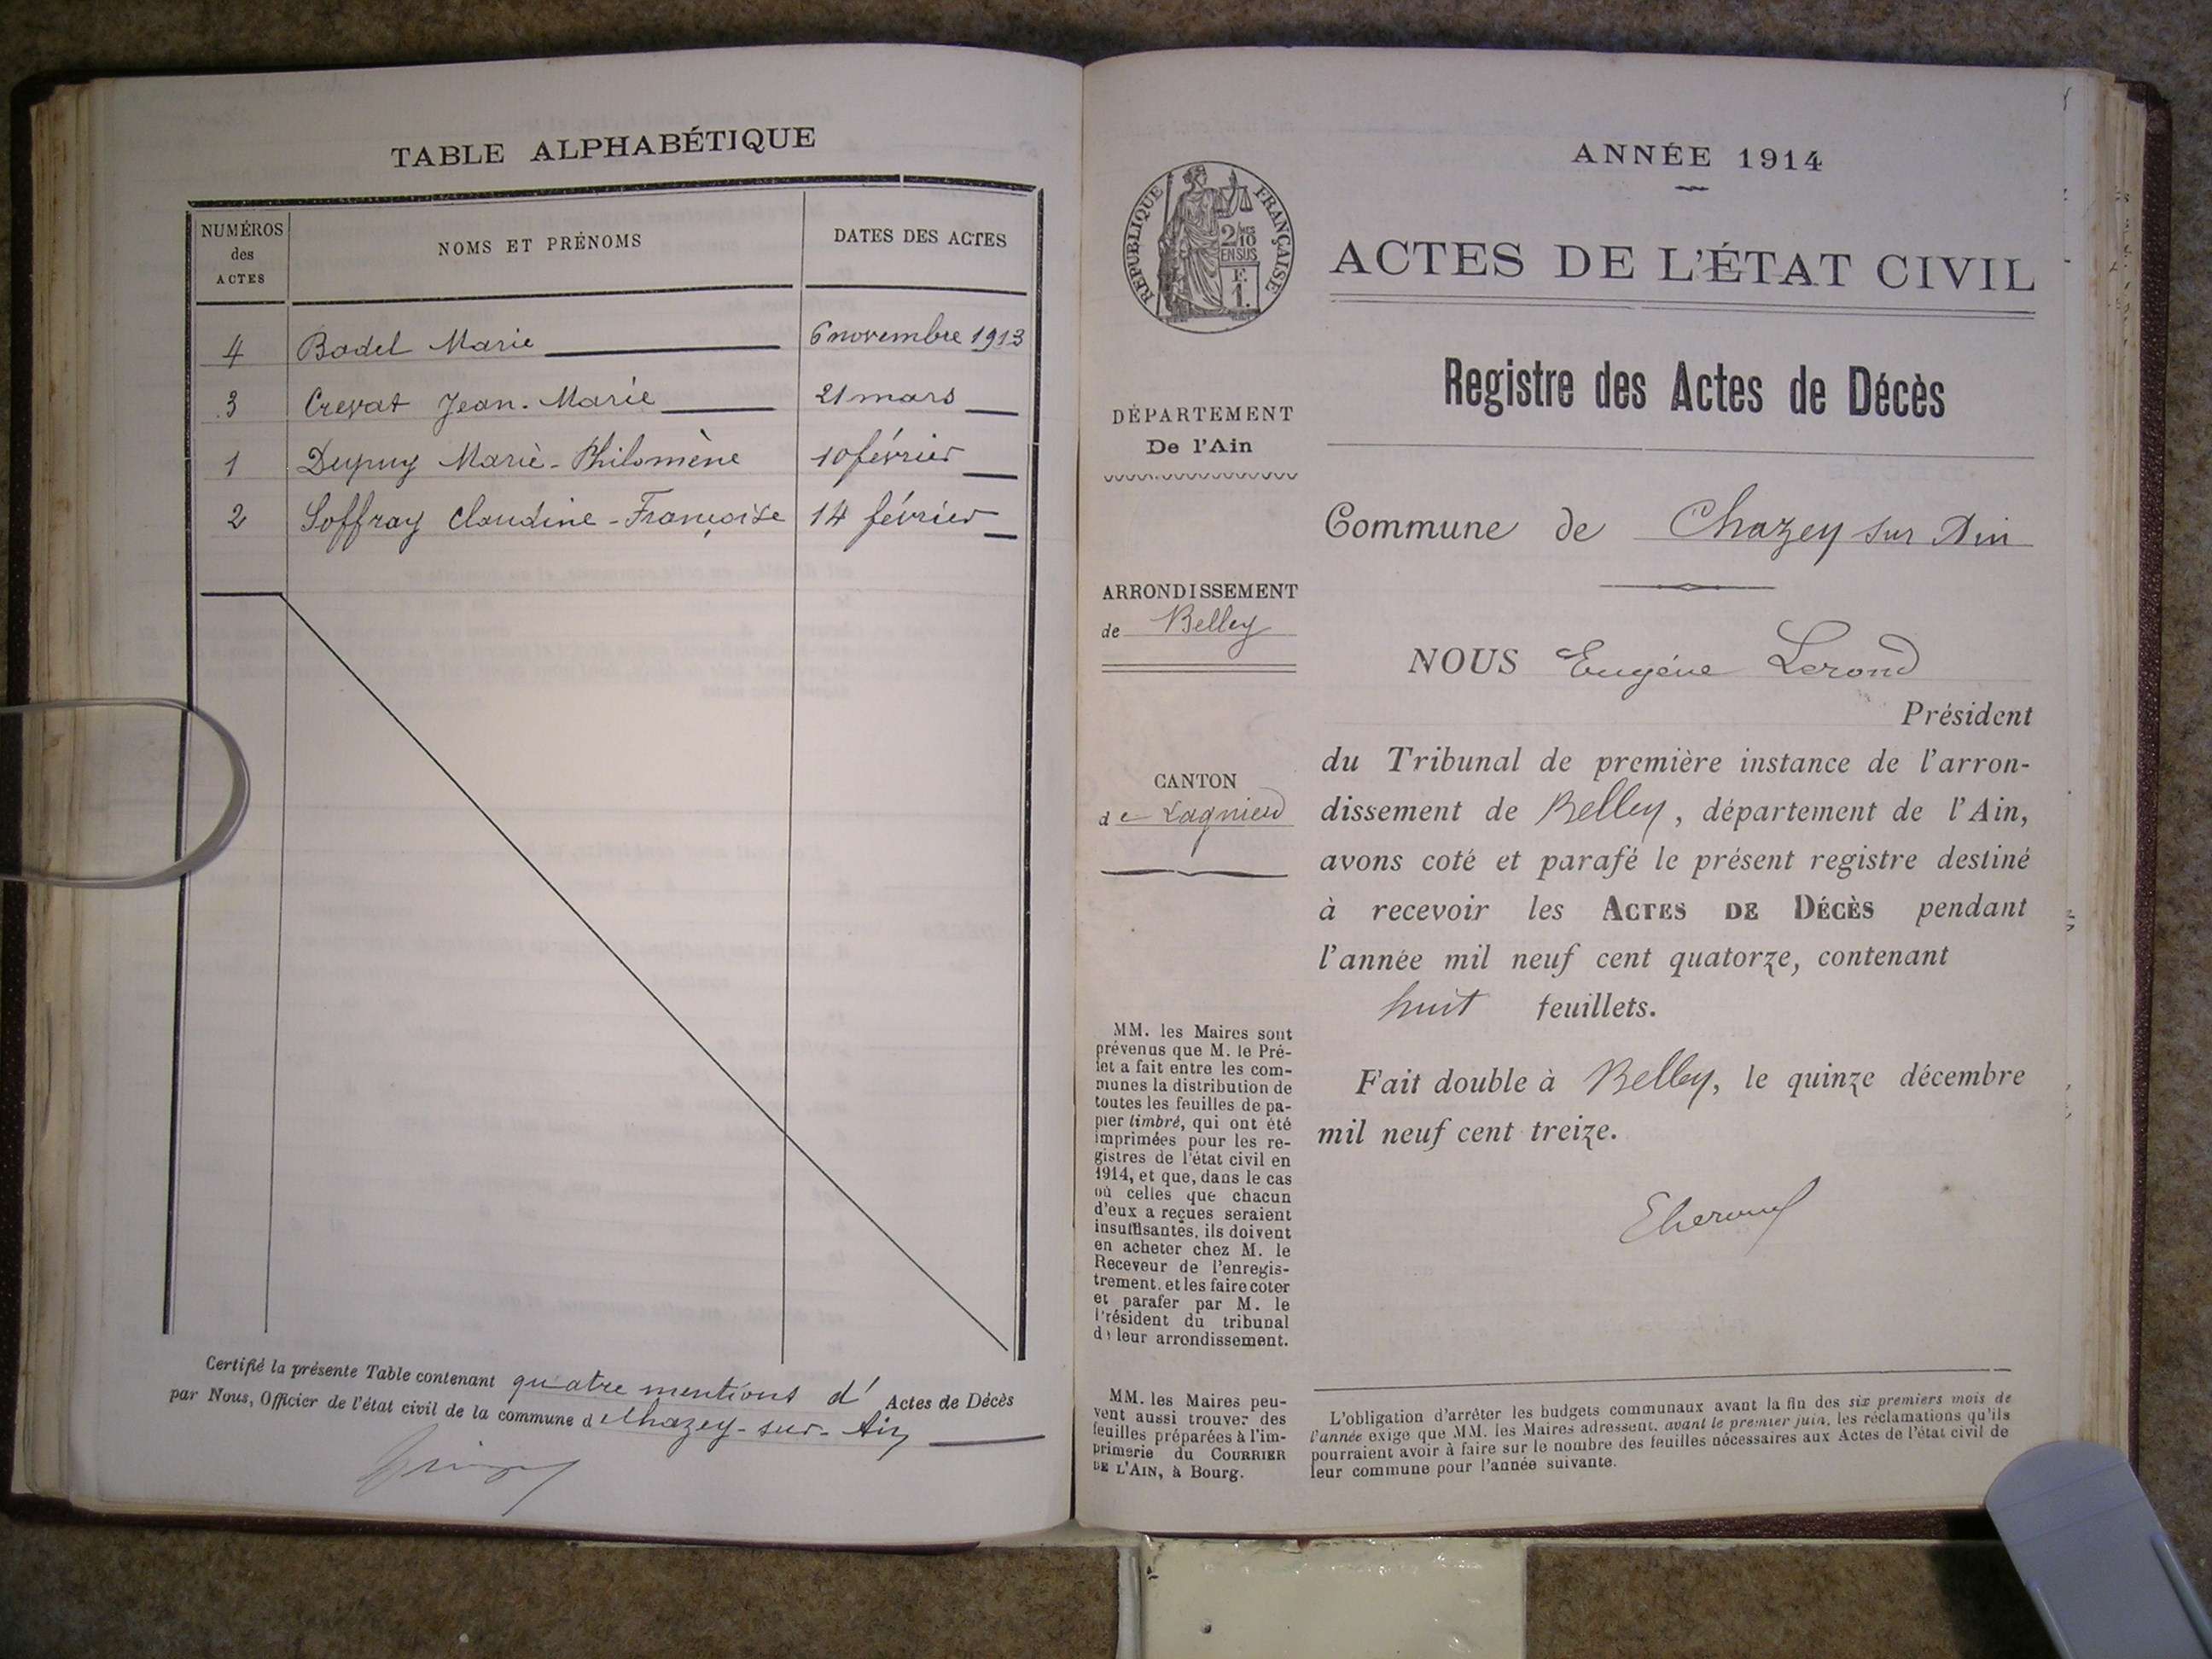 TABLE ALPHABÉTIQUE
NUMÉROS
des
ACTES
NOMS ET PRÉNOMS
DATES DES ACTES
4 Badel Marie 6 novembre 1913
3 Crevat Jean-Marie 21 mars
1 Dupuy Marie-Philomène 10 février
2 Soffray Claudine-Françoise 14 février
Certifié la présente Table contenant quatre mentions d' Actes de Décès
par Nous, Officier de l'état civil de la commune d e Chazey-sur-Ain
ANNÉE 1914
RÉPUBLIQUE FRANÇAISE
2/10
EN SUS
F.
1.
ACTES DE L'ÉTAT CIVIL
Registre des Actes de Décès
DÉPARTEMENT
De l'Ain
Commune de Chazey sur Ain
ARRONDISSEMENT
de Belley
CANTON
de Lagnieu
NOUS Eugène Lerond
Président
du Tribunal de première instance de l'arron-
dissement de Belley, département de l'Ain,
avons coté et parafé le présent registre destiné
à recevoir les ACTES DE DÉCÈS pendant
l'année mil neuf cent quatorze, contenant
huit feuillets.
Fait double à Belley, le quinze décembre
mil neuf cent treize.
MM. les Maires sont
prévenus que M. le Pré-
fet a fait entre les com-
munes la distribution de
toutes les feuilles de pa-
pier timbré, qui ont été
imprimées pour les re-
gistres de l'état civil en
1914, et que, dans le cas
où celles que chacun
d'eux a reçues seraient
insuffisantes, ils doivent
en acheter chez M. le
Receveur de l'enregis-
trement, et les faire coter
et parafer par M. le
Président du tribunal
de leur arrondissement.
MM. les Maires peu-
vent aussi trouver des
feuilles préparées à l'im-
primerie du COURRIER
DE L'AIN, à Bourg.
L'obligation d'arrêter les budgets communaux avant la fin des six premiers mois de
l'année exige que MM. les Maires adressent, avant le premier juin, les réclamations qu'ils
pourraient avoir à faire sur le nombre des feuilles nécessaires aux Actes de l'état civil de
leur commune pour l'année suivante.